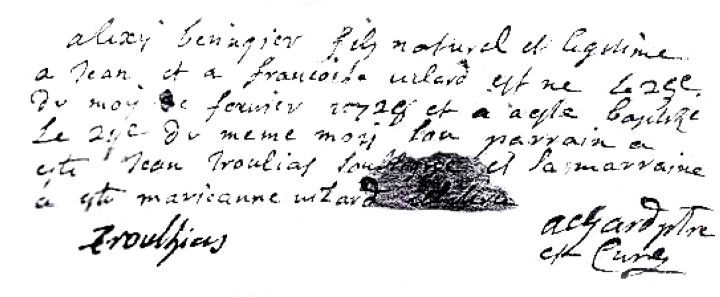 alexij beringier fils naturel et legitime
a Jean et a francoise vilard est ne le 25e
du mois de fevrier 1728 et a aeste baptizé
le 29e du meme mois son parrain a
esté Jean Troulias et sa marraine
a esté marieanne vilard
Troulhias
achard ptre
et Curé